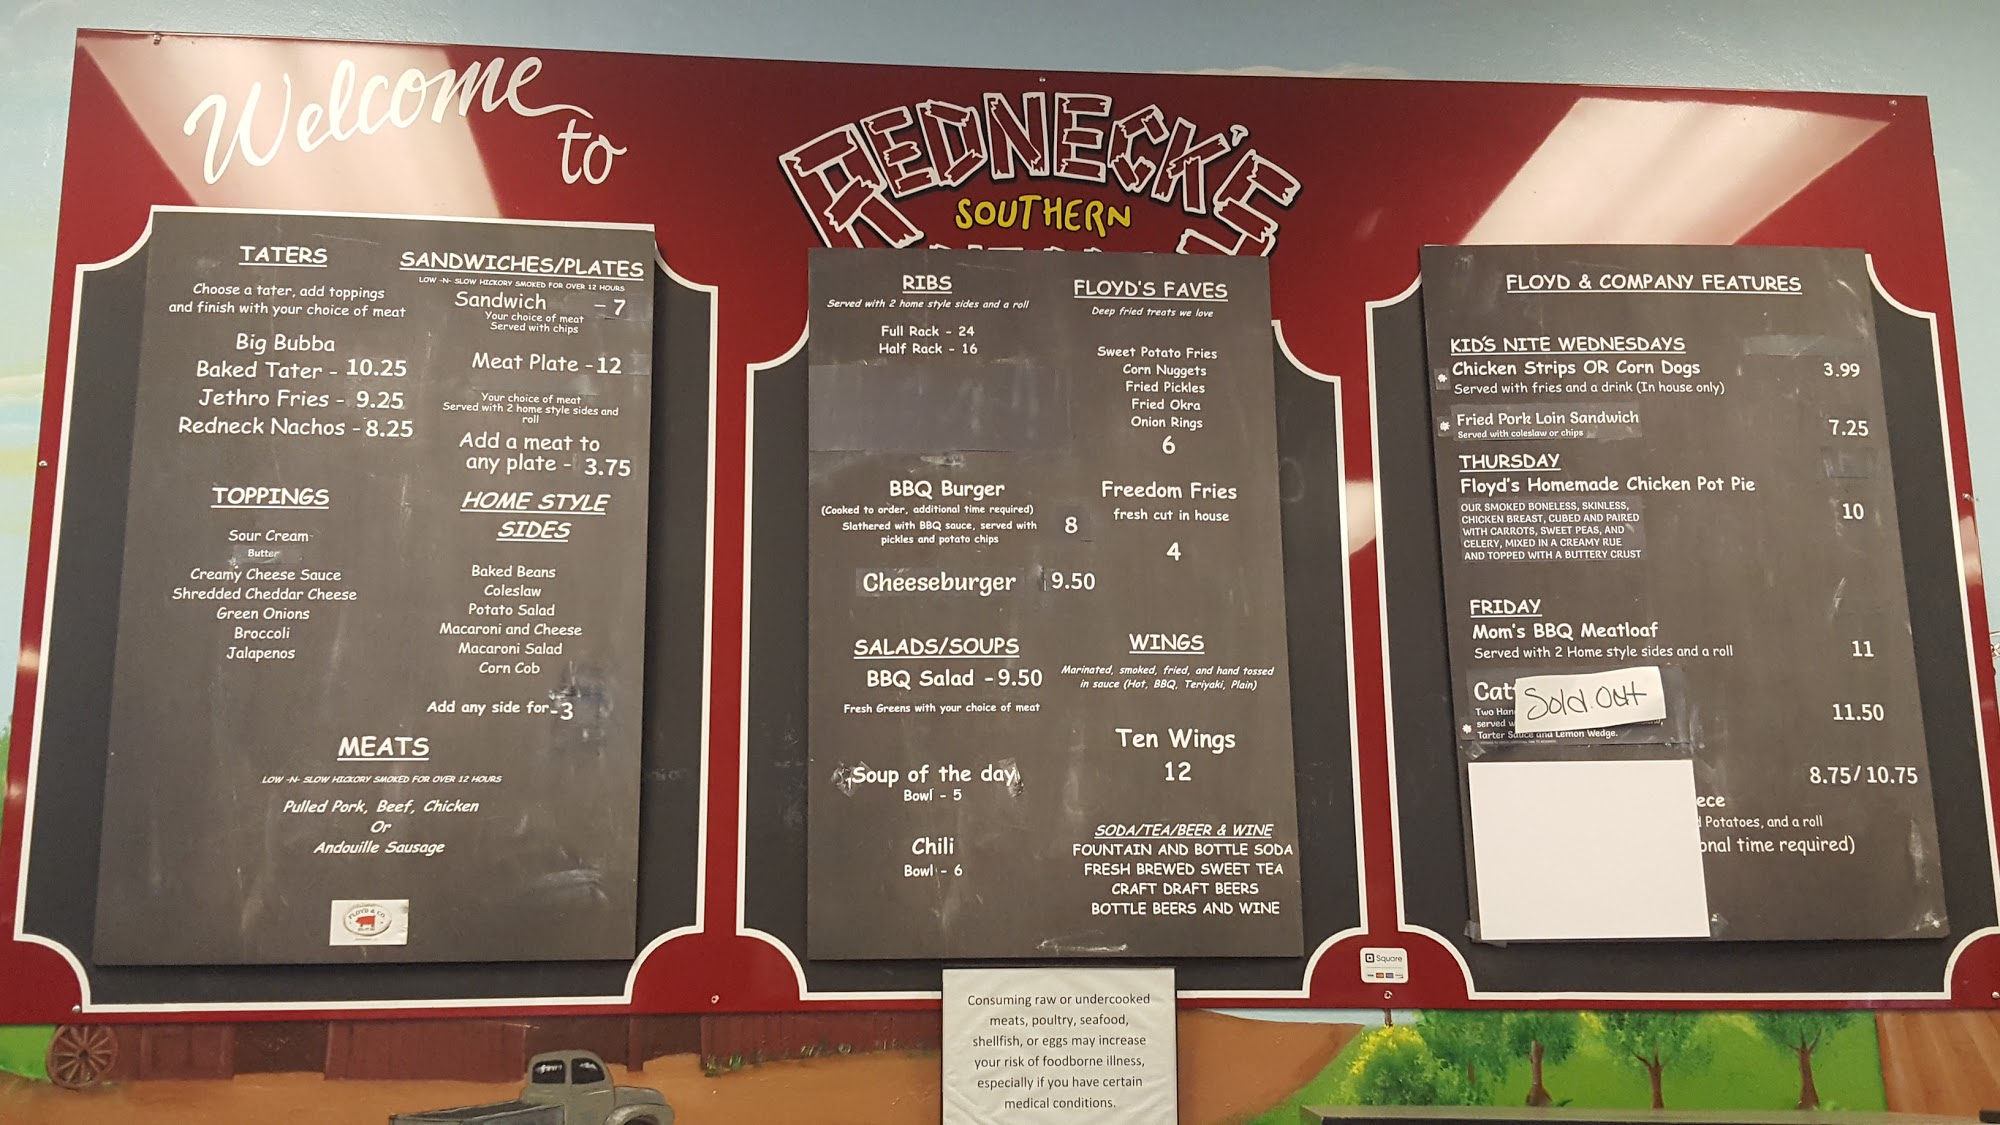 Welcome
to
REDNECK'S
SOUTHERN
TATERS
Choose a tater, add toppings
and finish with your choice of meat
Big Bubba
Baked Tater - 10.25
Jethro Fries - 9.25
Redneck Nachos - 8.25
TOPPINGS
Sour Cream
Butter
Creamy Cheese Sauce
Shredded Cheddar Cheese
Green Onions
Broccoli
Jalapenos
SANDWICHES/PLATES
LOW -N- SLOW HICKORY SMOKED FOR OVER 12 HOURS
Sandwich - 7
Your choice of meat
Served with chips
Meat Plate - 12
Your choice of meat
Served with 2 home style sides and
roll
Add a meat to
any plate - 3.75
HOME STYLE
SIDES
Baked Beans
Coleslaw
Potato Salad
Macaroni and Cheese
Macaroni Salad
Corn Cob
Add any side for - 3
MEATS
LOW -N- SLOW HICKORY SMOKED FOR OVER 12 HOURS
Pulled Pork, Beef, Chicken
Or
Andouille Sausage
FLOYD & CO.
RIBS
Served with 2 home style sides and a roll
Full Rack - 24
Half Rack - 16
BBQ Burger
(Cooked to order, additional time required)
Slathered with BBQ sauce, served with
pickles and potato chips
8
Cheeseburger 9.50
SALADS/SOUPS
BBQ Salad - 9.50
Fresh Greens with your choice of meat
Soup of the day
Bowl - 5
Chili
Bowl - 6
FLOYD'S FAVES
Deep fried treats we love
Sweet Potato Fries
Corn Nuggets
Fried Pickles
Fried Okra
Onion Rings
6
Freedom Fries
fresh cut in house
4
WINGS
Marinated, smoked, fried, and hand tossed
in sauce (Hot, BBQ, Teriyaki, Plain)
Ten Wings
12
SODA/TEA/BEER & WINE
FOUNTAIN AND BOTTLE SODA
FRESH BREWED SWEET TEA
CRAFT DRAFT BEERS
BOTTLE BEERS AND WINE
FLOYD & COMPANY FEATURES
KID'S NITE WEDNESDAYS
Chicken Strips OR Corn Dogs 3.99
Served with fries and a drink (In house only)
Fried Pork Loin Sandwich 7.25
Served with coleslaw or chips
THURSDAY
Floyd's Homemade Chicken Pot Pie
OUR SMOKED BONELESS, SKINLESS, 10
CHICKEN BREAST, CUBED AND PAIRED
WITH CARROTS, SWEET PEAS, AND
CELERY, MIXED IN A CREAMY RUE
AND TOPPED WITH A BUTTERY CRUST
FRIDAY
Mom's BBQ Meatloaf
Served with 2 Home style sides and a roll 11
Cat
Sold Out
Two Han 11.50
served w
Tarter Sauce and Lemon Wedge.
8.75/ 10.75
ece
Potatoes, and a roll
onal time required)
Square
Consuming raw or undercooked
meats, poultry, seafood,
shellfish, or eggs may increase
your risk of foodborne illness,
especially if you have certain
medical conditions.